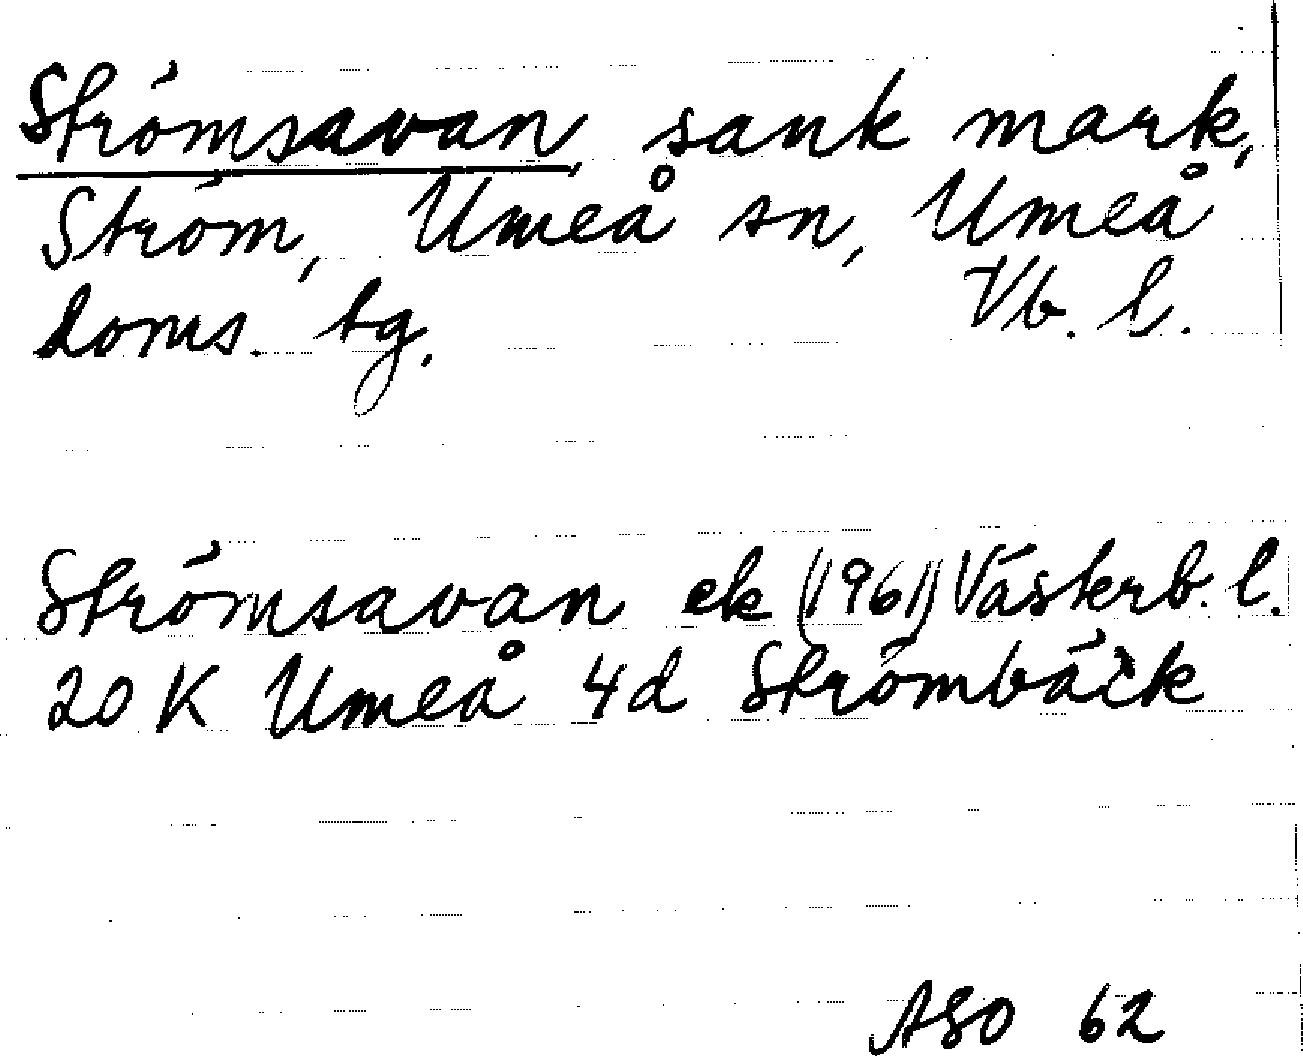 Strömsavan, sank mark,
Ström, Umeå sn, Umeå
doms. tg. Vb. l.
Strömsavan ek (1961) Västerb. l.
20 K Umeå 4d Strömbäck
ASO 62